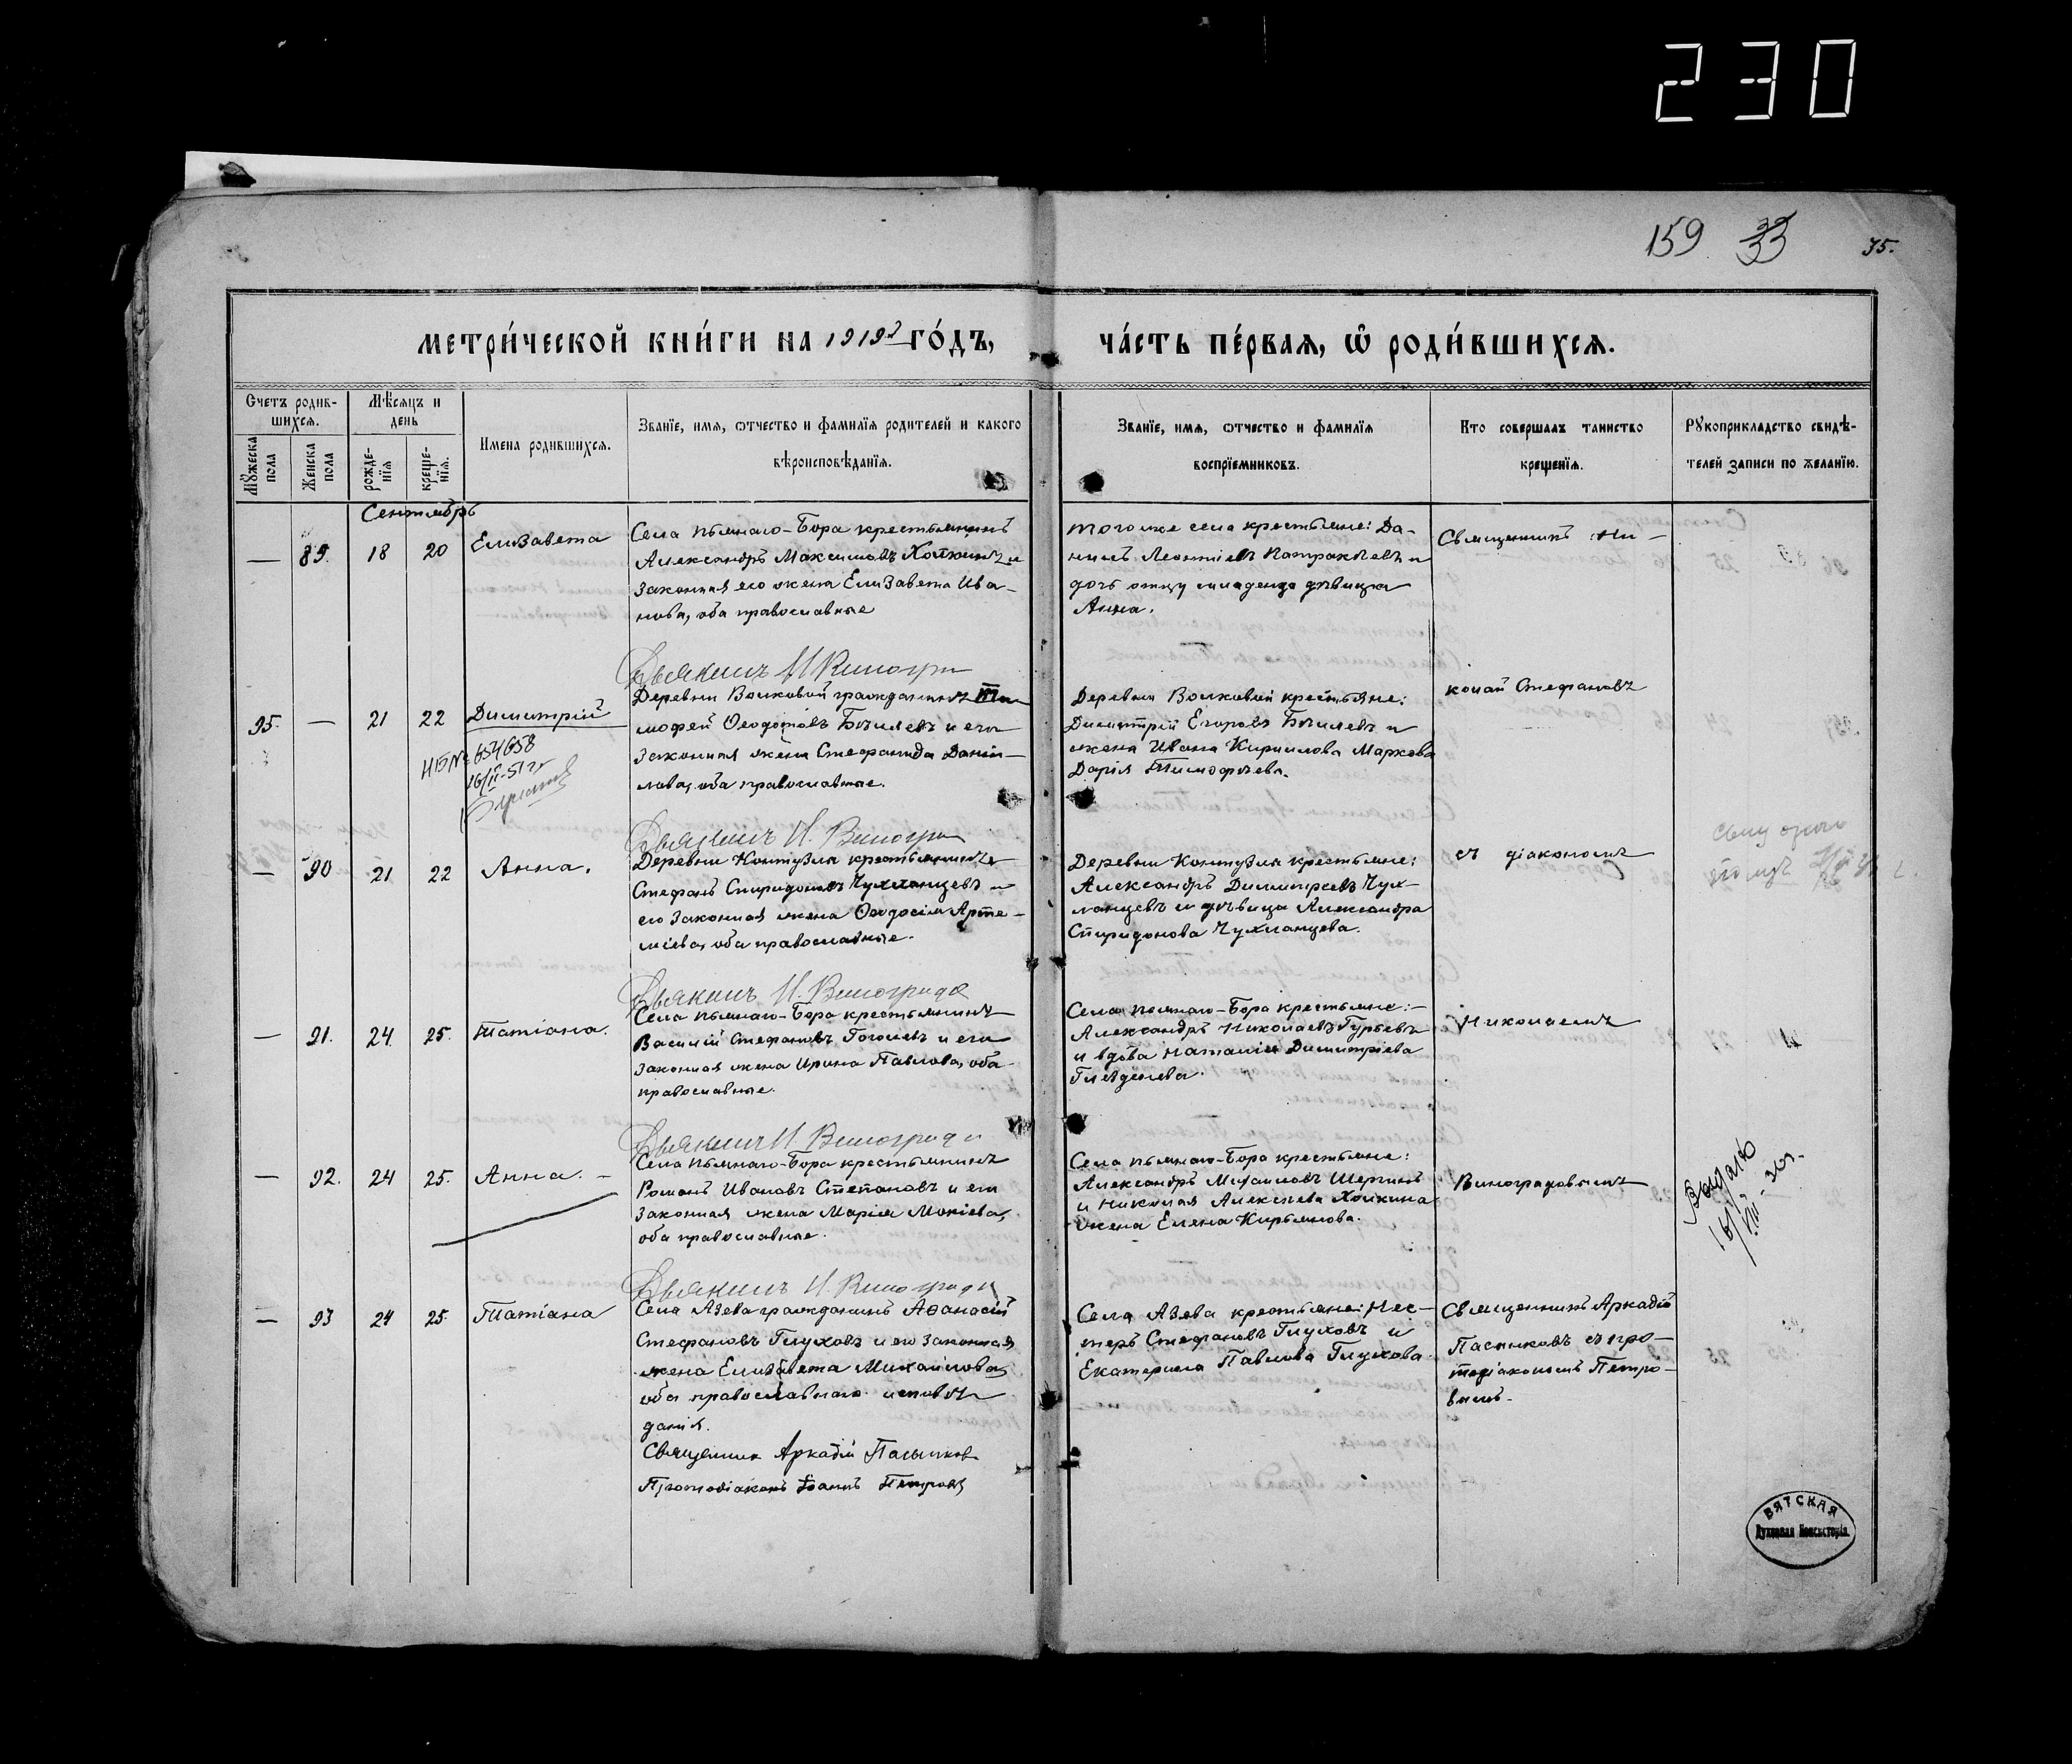 230
159 33
75.
МЕТРИ́ЧЕСКОЙ КНИ́ГИ НА 1919 ГО́ДЪ,
ЧА́СТЬ ПЕ́РВАЯ, Ѡ РОДИ́ВШИХСЯ.
Счетъ родив-
шихся.
Мѣсяцъ и
день
Мужеска
пола
Женска
пола
рожде-
нія
креще-
нія.
Имена родившихся.
Званїе, имя, ѻтчество и фамилїя родителей и какого
вѣроисповѣданїя.
Званїе, имя, ѻтчество и фамилїя
воспрїемниковъ.
Кто совершалъ таинство
крещенїя.
Рꙋкоприкладство свидѣ-
телей записи по желанїю.
Сентябрь
— 89. 18 20 Елизавета
Села Пьянаго-Бора крестьянинъ
Александръ Максимовъ и
законная его жена Елизавета Ива-
нова, оба православные
Дьяконъ Н Виногра
Того же села крестьяне: Да-
нилъ Леонтіевъ Патракѣевъ и
дочь отцу младенца дѣвица
Анна.
Священникъ Ни-
95. — 21 22 Димитрій
НБ№ 654658
16/II-51 г
Деревни Волковой гражданинъ Ти
моѳей Ѳеодотовъ Бѣляевъ и его
законная жена Стефанида Даніи-
лова, оба православные.
Дьяконъ Н. Виногра
Деревни Волковой крестьяне:
Димитрій Егоровъ Бѣляевъ и
жена Ивана Кирилова Маркова
Дарія Тимофѣева.
колай Стефановъ
— 90 21 22 Анна.
Деревни Контузла крестьянинъ
Стефанъ Спиридоновъ Чухланцевъ и
его законная жена Ѳеодосія Арте-
міева, оба православные.
Дьяконъ Н. Виноградо
Деревни Контузла крестьяне:
Александръ Димитріевъ Чух-
ланцевъ и дѣвица Александра
Спиридонова Чухланцева.
съ діакономъ
— 91. 24. 25. Татіана.
Села Пьянаго-Бора крестьянинъ
Василій Стефановъ Гоголевъ и его
законная жена Ирина Павлова, оба
православные.
Дьяконъ Н. Виноградо
Села Пьянаго-Бора крестьяне:
Александръ Николаевъ Гурьевъ
и вдова Наталія Димитріева
Глѣзденева.
Николаемъ
— 92. 24 25. Анна. —
Села Пьянаго-Бора крестьянинъ
Романъ Ивановъ Степановъ и его
законная жена Марія Мокіева,
оба православные.
Дьяконъ Н. Виноградо
Села Пьянаго-Бора крестьяне:
Александръ Михаиловъ Шергинъ
и Николая Алексѣева Холкина
жена Елена Кирьянова.
Виноградовымъ
Выдано
16/VIII-30г.
— 93 24 25. Татіана
Села Азева гражданинъ Аѳанасій
Стефановъ Глуховъ и его законная
жена Елизавета Михаилова,
оба православнаго исповѣ
данія.
Священникъ Аркадій Пасынков
Протодіаконъ Іоаннъ Петровъ
Села Азева крестьяне: Нес-
теръ Стефановъ Глуховъ и
Екатерина Павлова Глухова.
Священникъ Аркадій
Пасынковъ съ про-
тодіакономъ Петро-
вымъ.
ВЯТСКАЯ
Духовная Консисторія